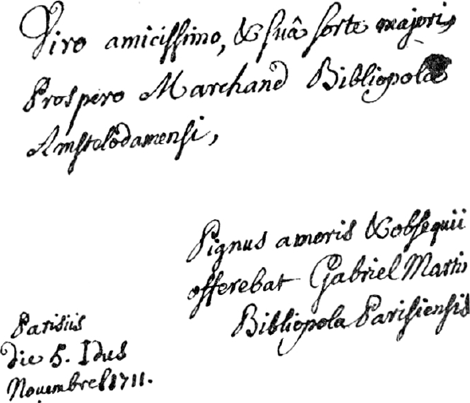 Viro amicissimo, & suâ sorte majori,
Prospero Marchand Bibliopolæ
Amstelodamensi,
Pignus amoris & obsequii
offerebat Gabriel Martin
Bibliopola Parisiensis
Parisiis
die 5. Idus
Novembres 1711.